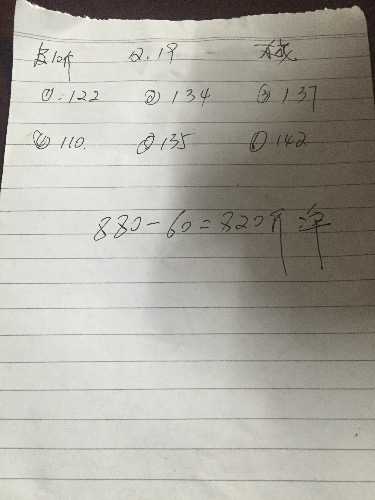 皮10斤 2.19
①.122 ②134 ③137
④110. ⑤135 ⑥142
880-60=820斤 净